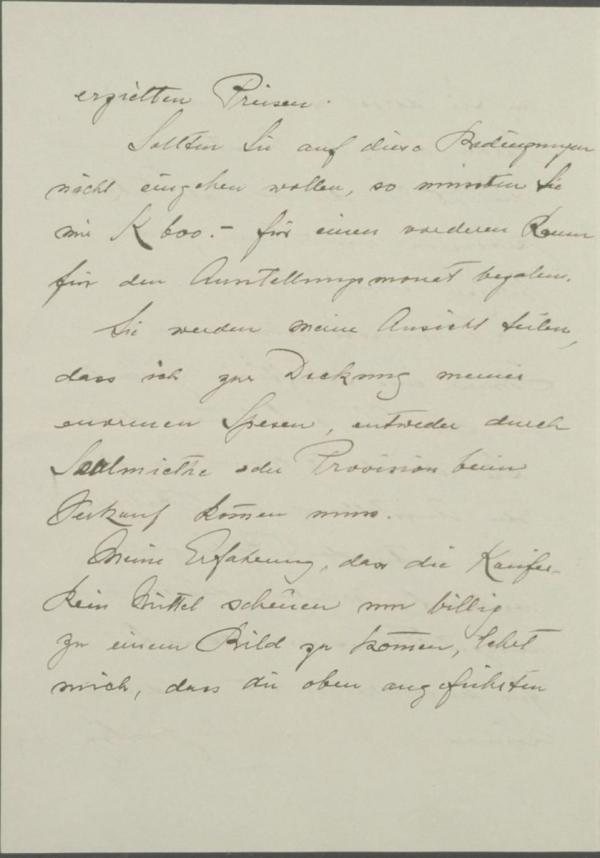 erzielten Preisen.
Sollten Sie auf diese Bedingungen
nicht eingehen wollen, so müssten Sie
mir K 600.- für einen vorderen Raum
für den Ausstellungsmonat bezalen.
Sie werden meine Ansicht teilen,
dass ich zur Deckung meiner
enormen Spesen, entweder durch
Saalmiethe oder Provision beim
Verkauf kommen muss.
Meine Erfahrung, dass die Käufer
kein Mittel scheuen um billig
zu einem Bild zu kommen, lehrt
mich, dass die oben angeführten